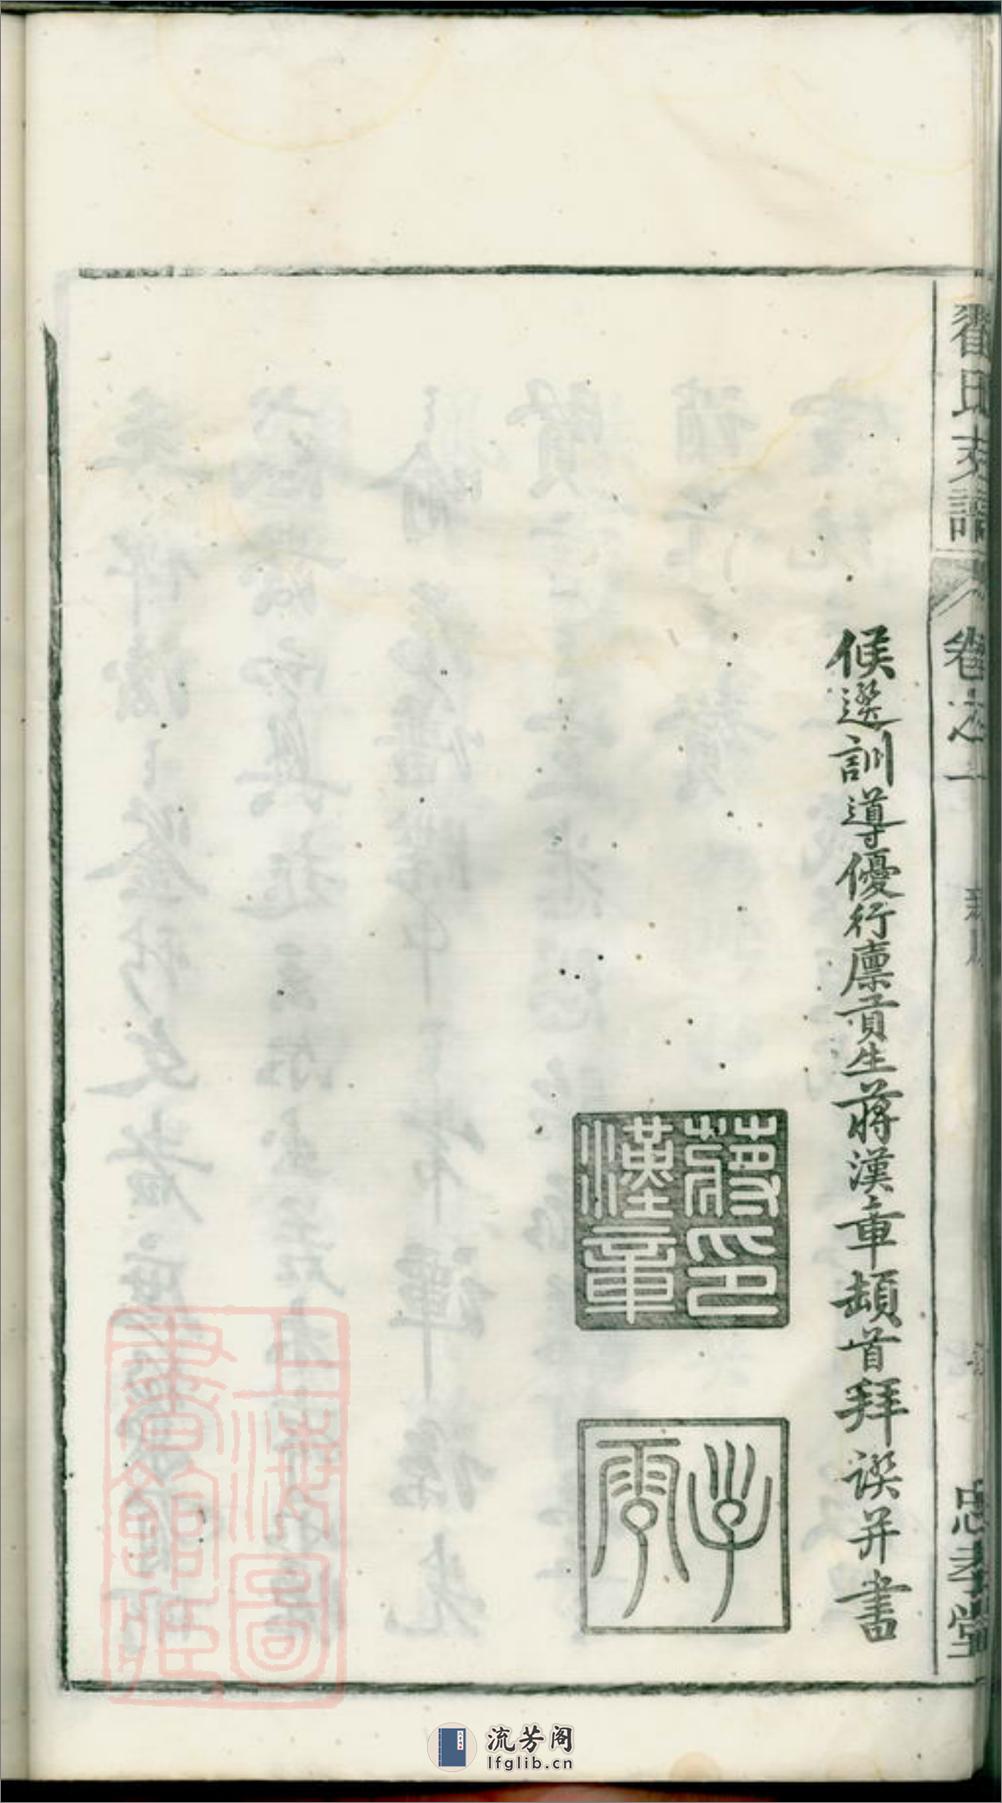 卷之一
忠孝堂
候選訓導優行廩貢生蔣漢章頓首拜譔并書
蔣印
漢章
雲子
上海圖
書館藏
流芳阁
lfglib.cn